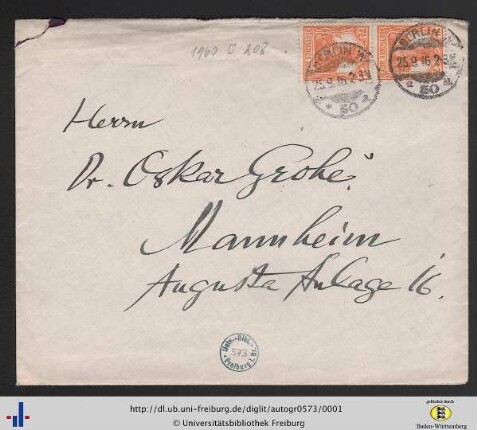 1960 G 208
BERLIN W
25.9.16.2-3N
* 50 a
BERLIN W
25.9.16.2-3N
* 50 a
Herrn
Dr. Oskar Grohé.
Mannheim
Augusta Anlage 16.
Univ.-Bibl.
573
Freiburg i. Br.
http://dl.ub.uni-freiburg.de/diglit/autogr0573/0001
© Universitätsbibliothek Freiburg
gefördert durch
Baden-Württemberg